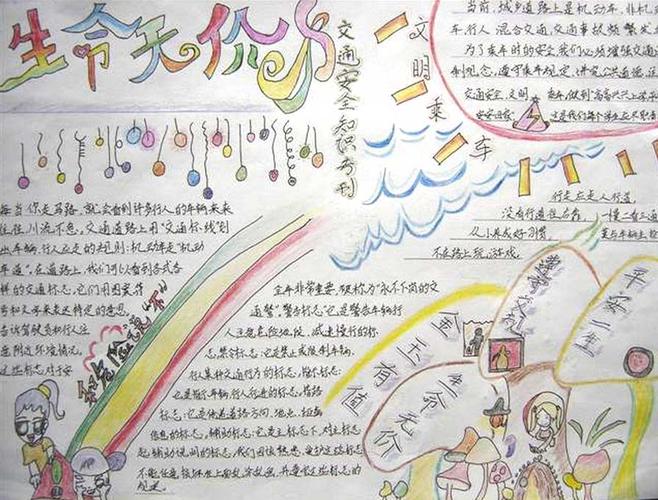 生命无价
交通安全知识专刊
文明乘车
当前,城乡道路上是机动车、非机动
车行人混合交通,交通事故频繁发生
为了乘车时的安全我们必须增强交通法
制观念,遵守乘车规定,讲究公共道德,注
交通安全,文明
乘车,做到"高高兴兴上学
安安回家"
每当你走马路,就会看到许多行人的车辆来来
往往川流不息,交通道路上用"交通标线"划
出车辆、行人应走的规则:机动车走"机动
车道"。在道路上,我们可以看到各式各
样的交通标志,它们用图案符
号和文字来表达特定的意思,
告诉驾驶员和行人注
意附近环境情况。
这些标志对于安
全非常重要,被称为"永不下岗的交
通警"。警告标志:它是警告车辆行
人注意危险地段,减速慢行的标
志;禁令标志:它是禁止或限制车辆、
行人某种交通行为的标志;指示标志:
它是指示车辆行人行进的标志;指路
标志:它是传递道路方向、地点、距离
信息的标志。辅助标志:它是主标志下,对主标志
起辅助说明的标志,我们应该熟悉、爱护这些标志
不能任意
规定。
行走应走人行道,
没有行道往右靠,
从小养成好习惯,
不在路上玩游戏。
一慢二看三通
莫与车辆去抢
平安二生
金玉有值
生命无价